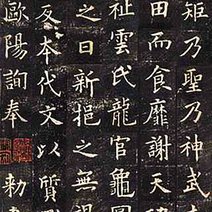 矩乃聖乃神武
田而食靡謝天
祉雲氏龍官龜圖
之日新挹之無
反本代文以質
歐陽詢奉 勅